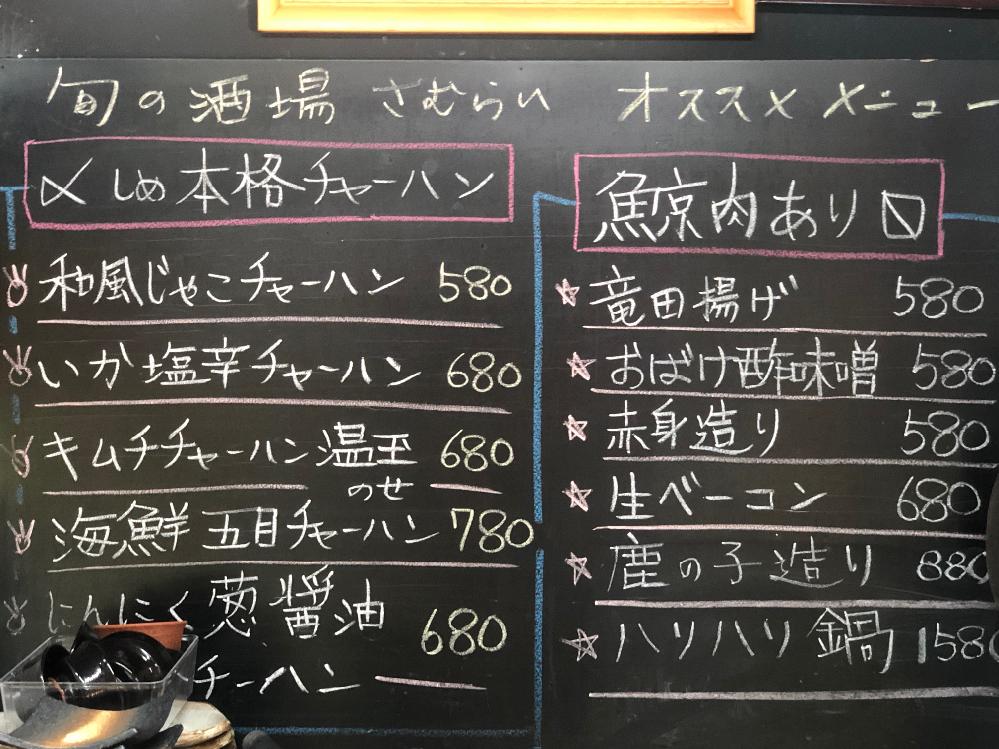 旬の酒場 さむらい オススメ メニュー
〆しめ本格チャーハン
和風じゃこチャーハン 580
いか塩辛チャーハン 680
キムチチャーハン温玉 680
のせ
海鮮五目チャーハン 780
にんにく葱醤油 680
チャーハン
鯨肉あり〼
竜田揚げ 580
おばけ酢味噌 580
赤身造り 580
生ベーコン 680
鹿の子造り 880
ハリハリ鍋 1580